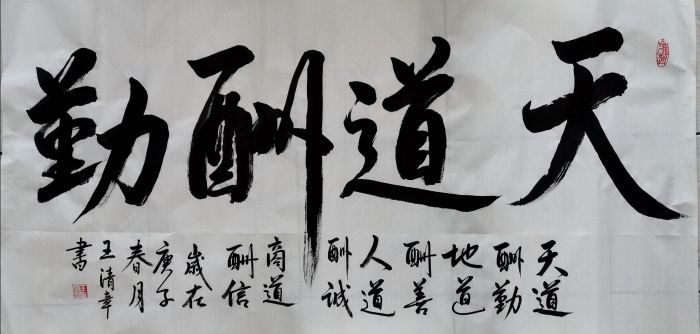 天道酬勤
天道
酬勤
地道
酬善
人道
酬诚
商道
酬信
歲在
庚子
春月
王清章
書